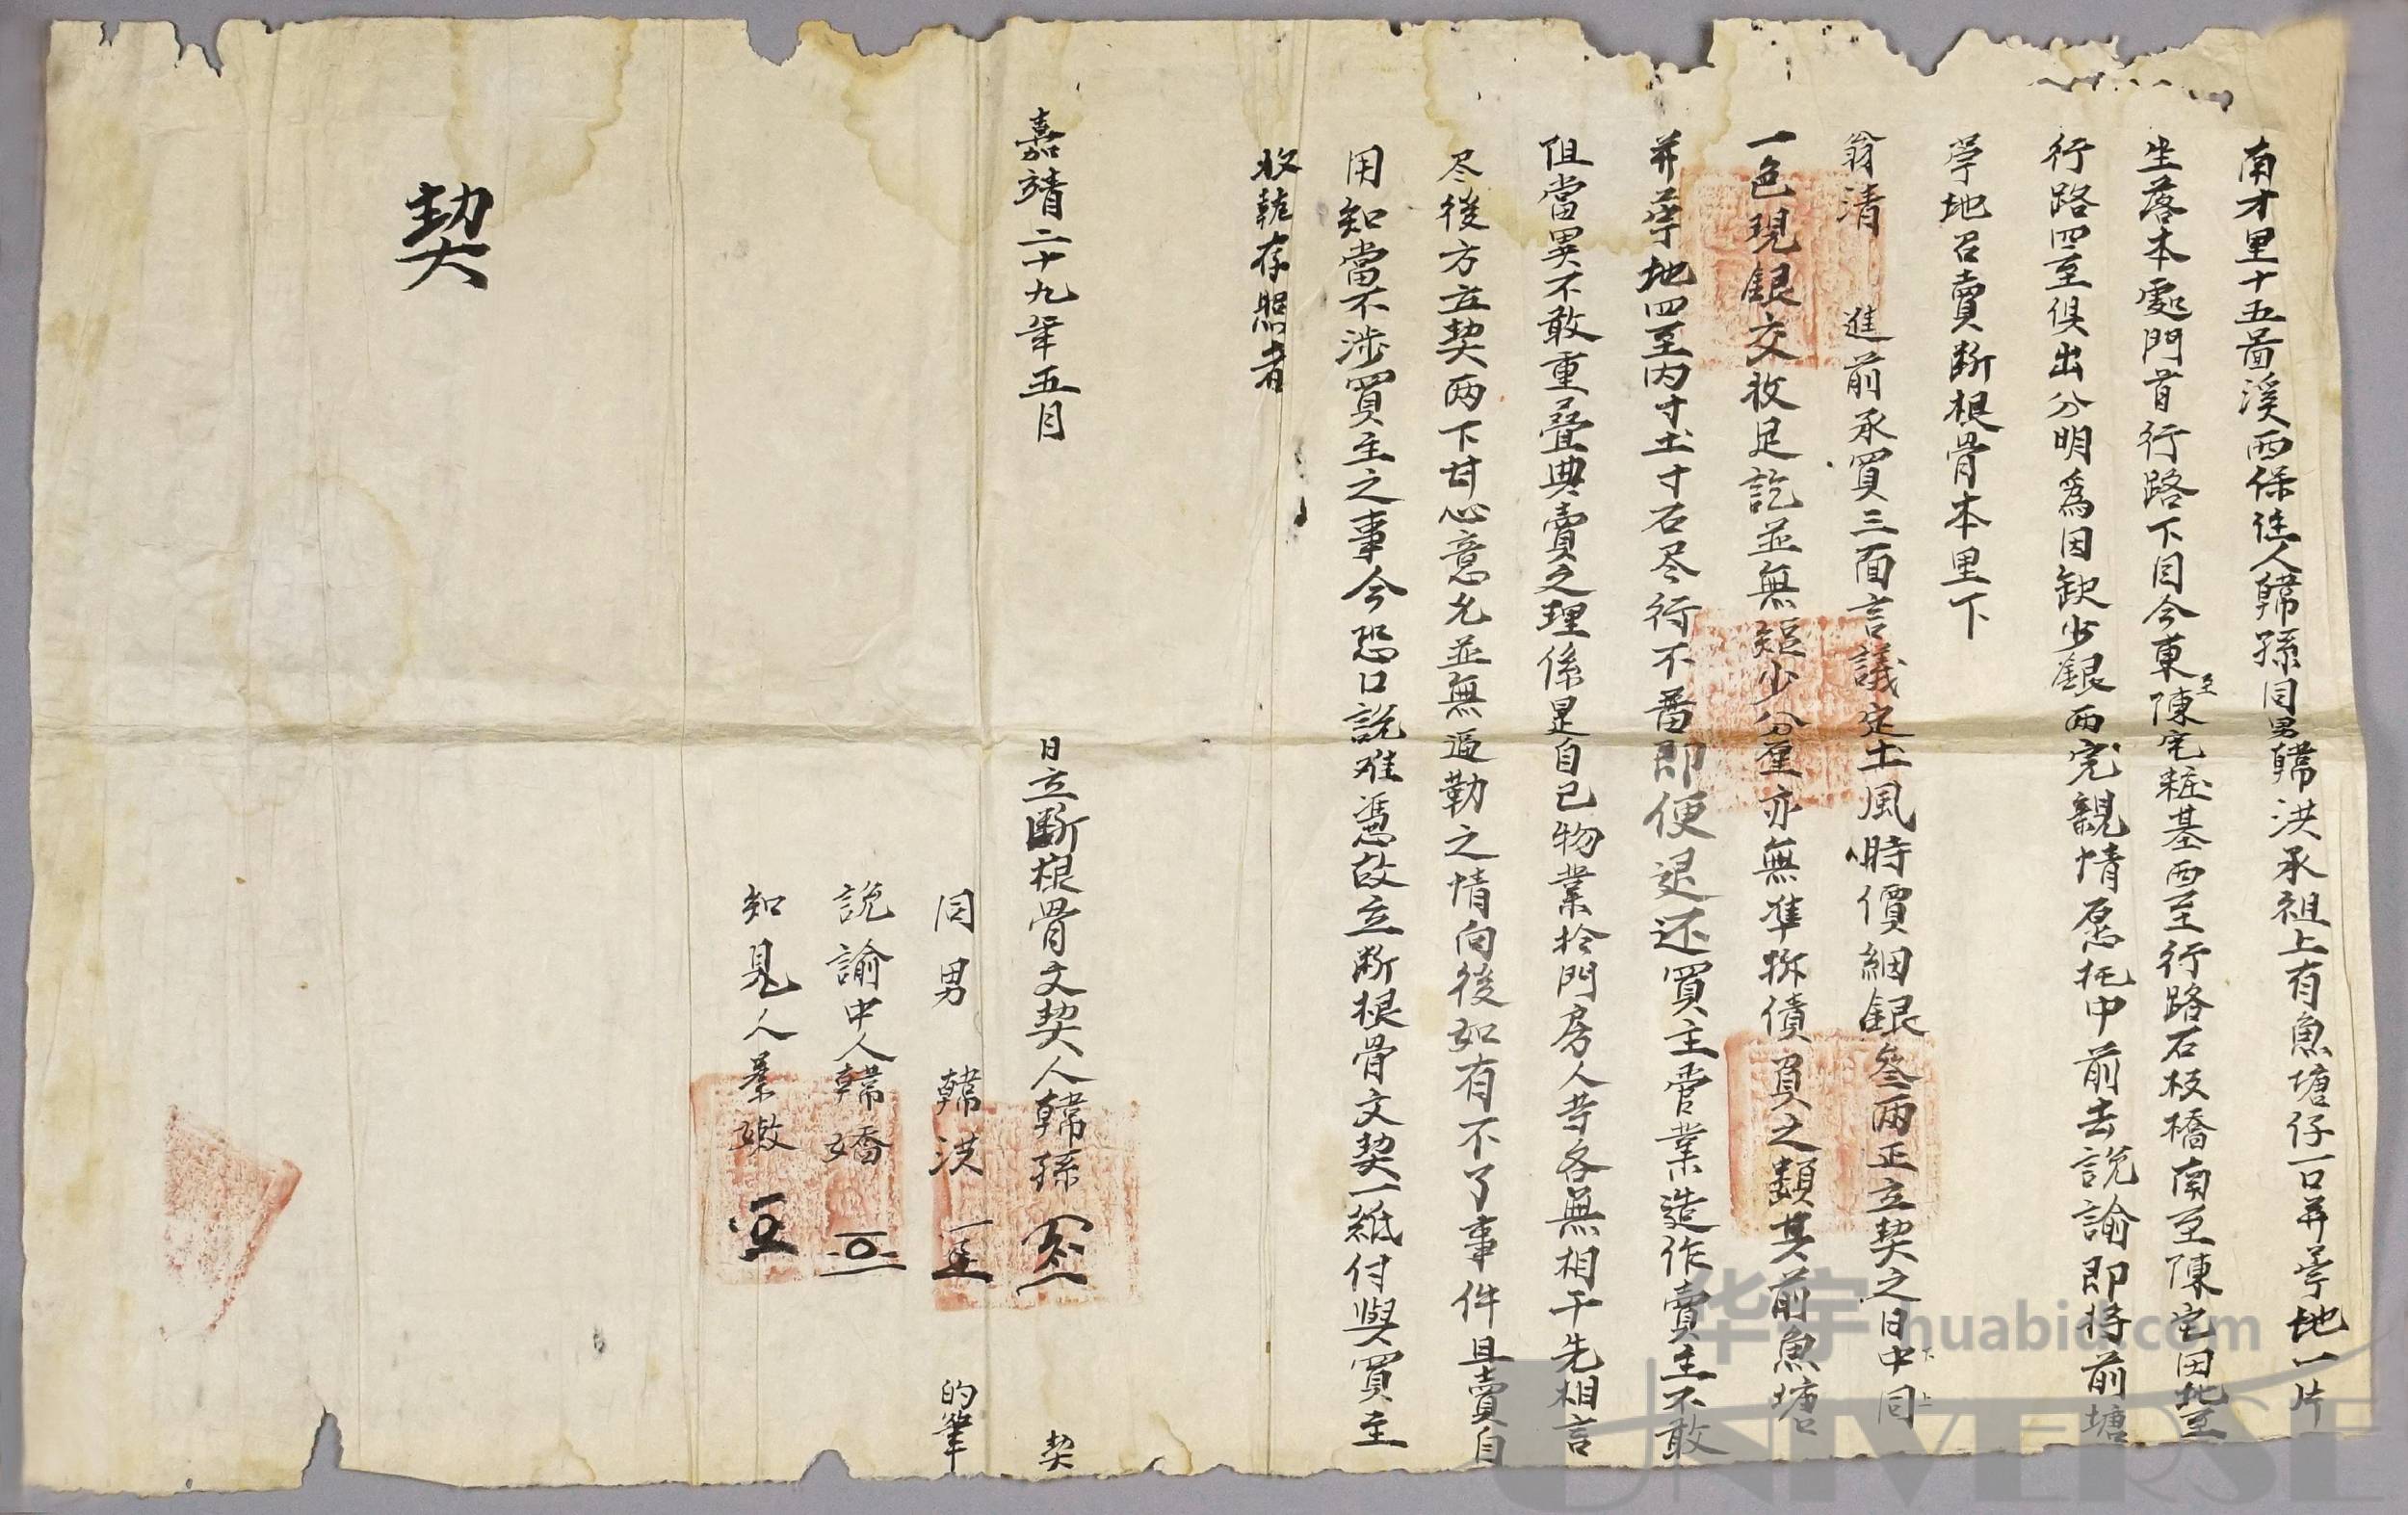 南才里十五啚溪西保住人韓孫同男韓洪承祖上有魚塘仔一口并荢地一片
坐落本處門首行路下目今東至陳宅粧基西至行路石枝橋南至陳宅田北至
行路四至俱出分明爲因缺少銀兩完親情愿托中前去説諭即将前塘
荢地召賣断根骨本里下
翁清 進前承買三面言議定土風時價絪銀叁兩正立契之日中同
一色現銀交收足訖並無短少分厘亦無準折債負之類其前魚塘
并荢地四至内寸土寸石尽行不畨即便退还買主管業造作賣主不敢
但當異不敢重疊典賣之理係是自己物業於門房人等各無相干先相言
尽後方立契两下甘心意允並無逼勒之情向後如有不了事件且賣自
用知當不涉買主之事今恐口説难憑故立断根骨文契一紙付與買主
收執存照者
嘉靖二十九年五月 日立断根骨文契人韓孫 契
同男 韓洪 的筆
説諭中人韓
知見人
契
华宇 huabid.com
UNIVERSE